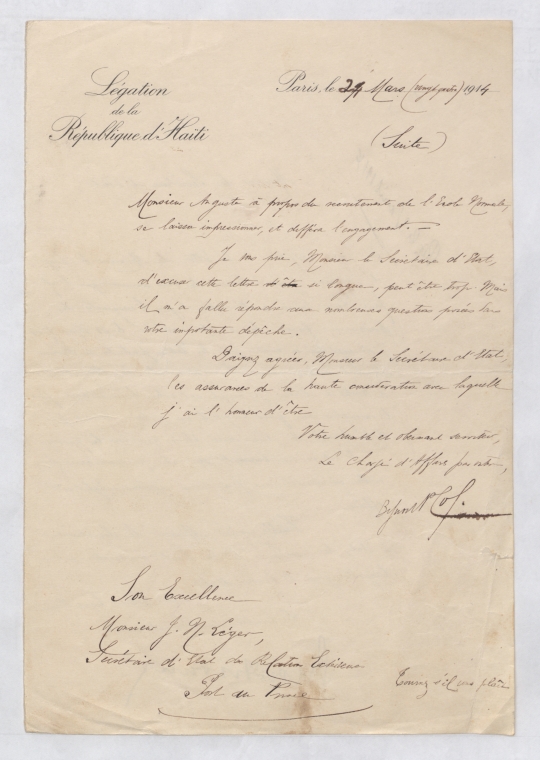 Légation
de la
République d'Haïti
Paris, le 24 Mars (vingt quatre) 1914
(Suite)
Monsieur Auguste à propos du recrutement de l'Ecole Normale,
se laisser impressionner, et différer l'engagement. —
Je vous prie, Monsieur le Secrétaire d'Etat,
d'excuser cette lettre si longue, peut être trop. Mais
il m'a fallu répondre aux nombreuses questions posées dans
votre importante dépêche.
Daignez agréer, Monsieur le Secrétaire d'Etat,
les assurances de la haute considération avec laquelle
j'ai l'honneur d'être
Votre humble et obéissant serviteur,
Le Chargé d'Affaires
Son Excellence
Monsieur J. N. Léger,
Secrétaire d'Etat des Relations Extérieures
Port au Prince
Tournez s'il vous plaît